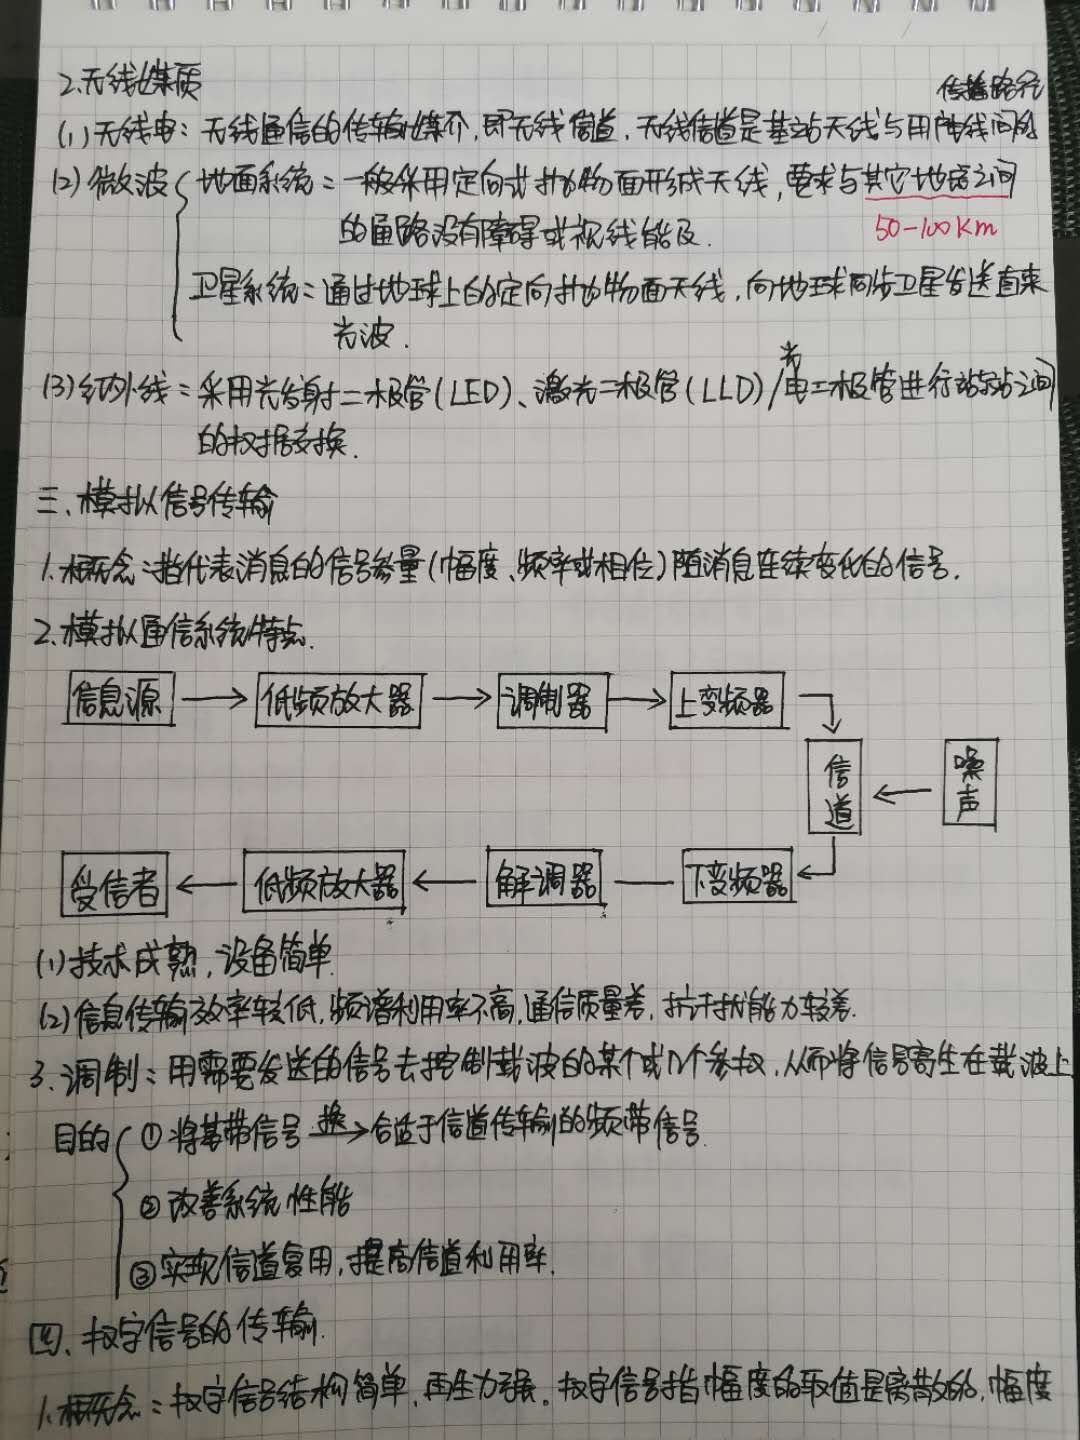 2.无线媒质
传输路径
(1)无线电：无线通信的传输媒介，即无线信道，无线信道是基站天线与用户天线间的
(2)微波 地面系统：一般采用定向式抛物面形成天线，要求与其它地点之间
50-100Km
的通路没有障碍或视线能及.
卫星系统：通过地球上的定向抛物面天线，向地球同步卫星发送直束
光波.
光
(3)红外线：采用光发射二极管(LED)、激光二极管(LLD)/电二极管进行站与站之间
的数据交换.
三、模拟信号传输
1.概念：指代表消息的信号参量(幅度、频率或相位)随消息连续变化的信号.
2.模拟通信系统特点.
信息源 → 低频放大器 → 调制器 → 上变频器
信道 ← 噪声
受信者 ← 低频放大器 ← 解调器 — 下变频器
(1)技术成熟，设备简单.
(2)信息传输效率较低，频谱利用率不高，通信质量差，抗干扰能力较差.
3.调制：用需要发送的信号去控制载波的某个或几个参数，从而将信号寄生在载波上
目的 ①将基带信号 换→ 合适于信道传输的频带信号.
②改善系统性能
③实现信道复用，提高信道利用率.
四、数字信号的传输.
1.概念：数字信号结构简单，再生力强。数字信号指幅度的取值是离散的，幅度